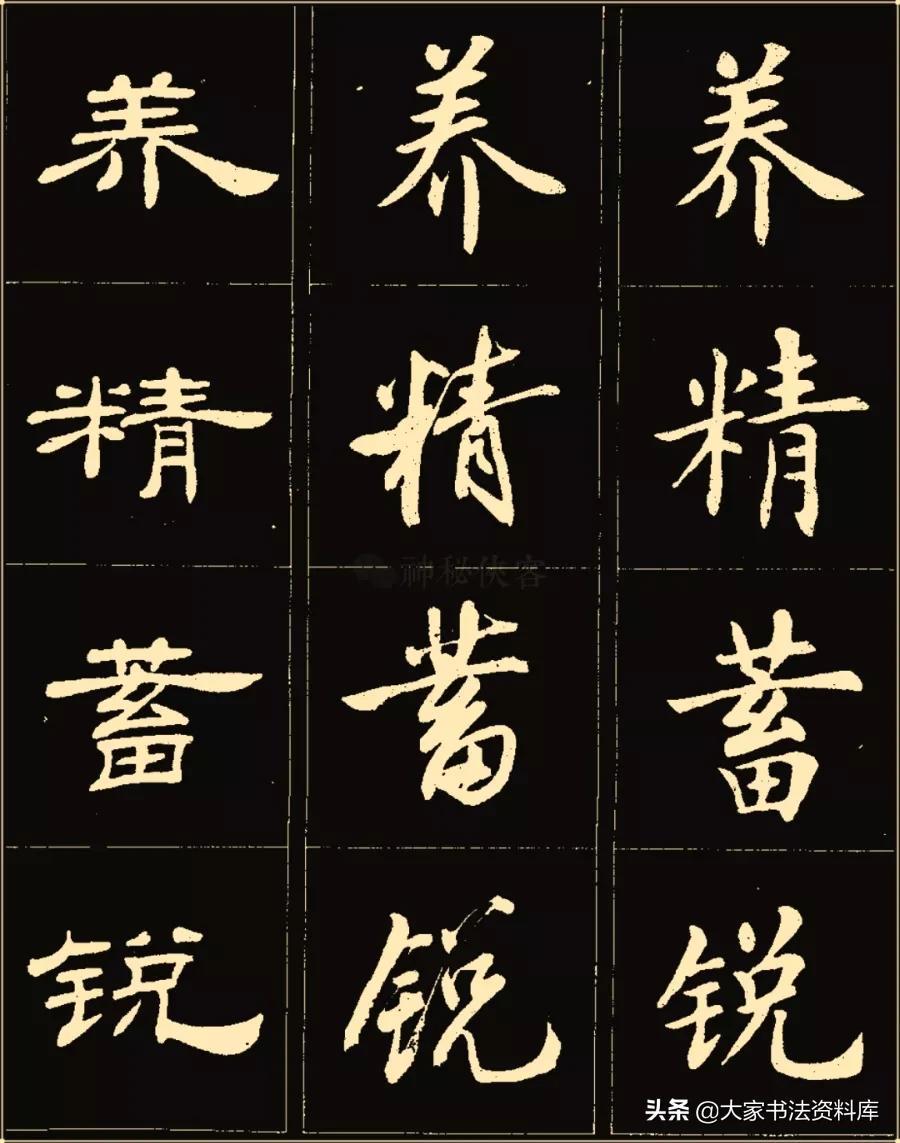 养 养 养
精 精 精
蓄 蓄 蓄
锐 锐 锐
神秘侠客
头条 @大家书法资料库